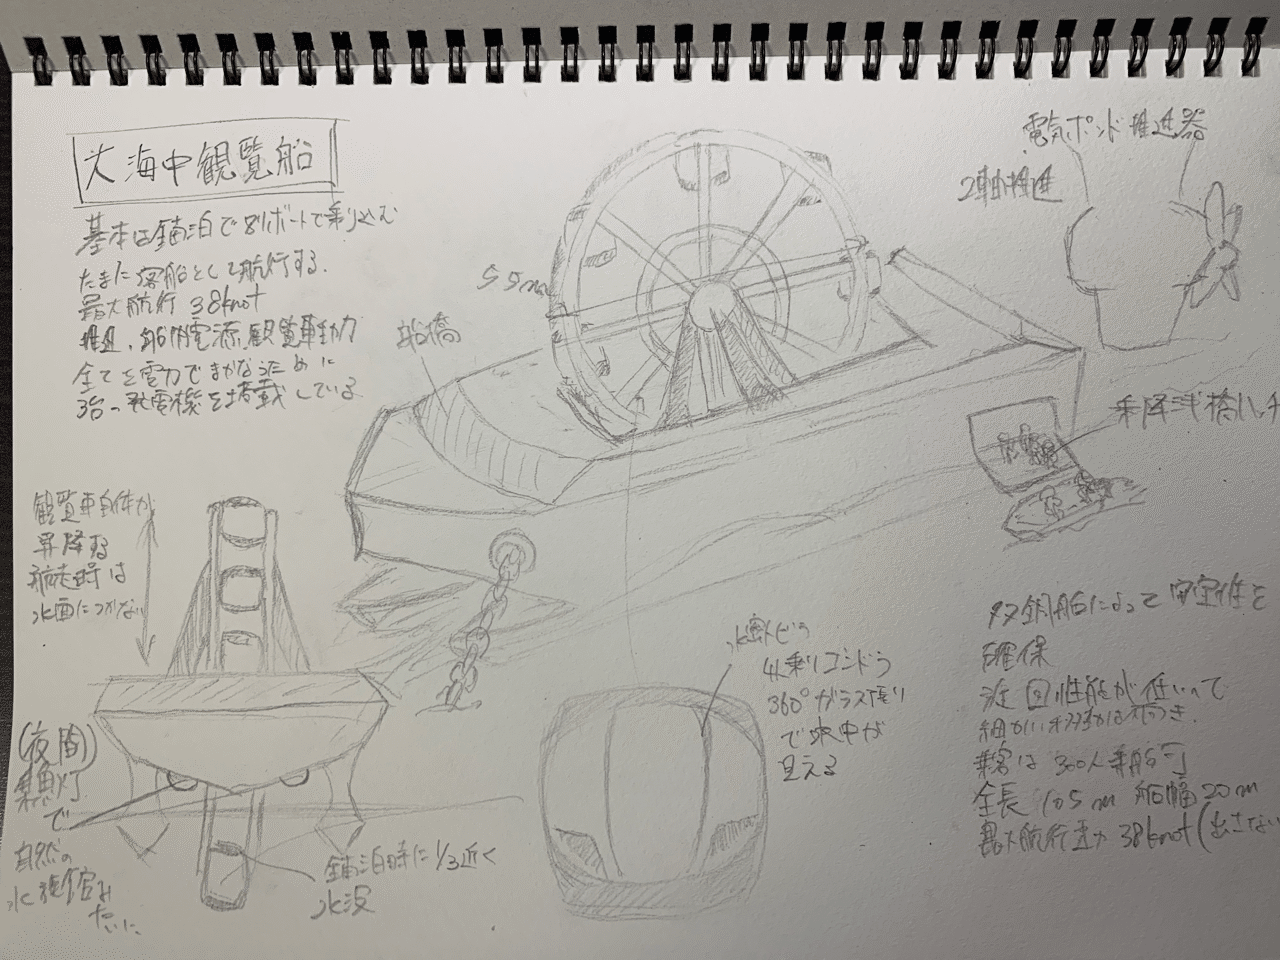 大海中観覧船
基本は錨泊で別ボートで乗り込む
たまに客船として航行する.
最大航行 38knot
推進、船内電源、観覧車動力
全てを電力でまかなうために
3台の発電機を搭載している
電気ポンド推進器
2軸推進
55m
船橋
乗降浅橋ハッチ
観覧車自体が
昇降する
航走時は
水面につかない
(夜間)
集魚灯
で
自然の
水族館み
たいに
錨泊時に1/3近く
水没
4人乗りゴンドラ
360°ガラス張り
で水中が
見える
双胴船によって安定性を
確保
旋回性能が低いので
細かい移動は不向き.
乗客は300人乗船可
全長 105m 船幅20m
最大航行速力 38knot(出さない